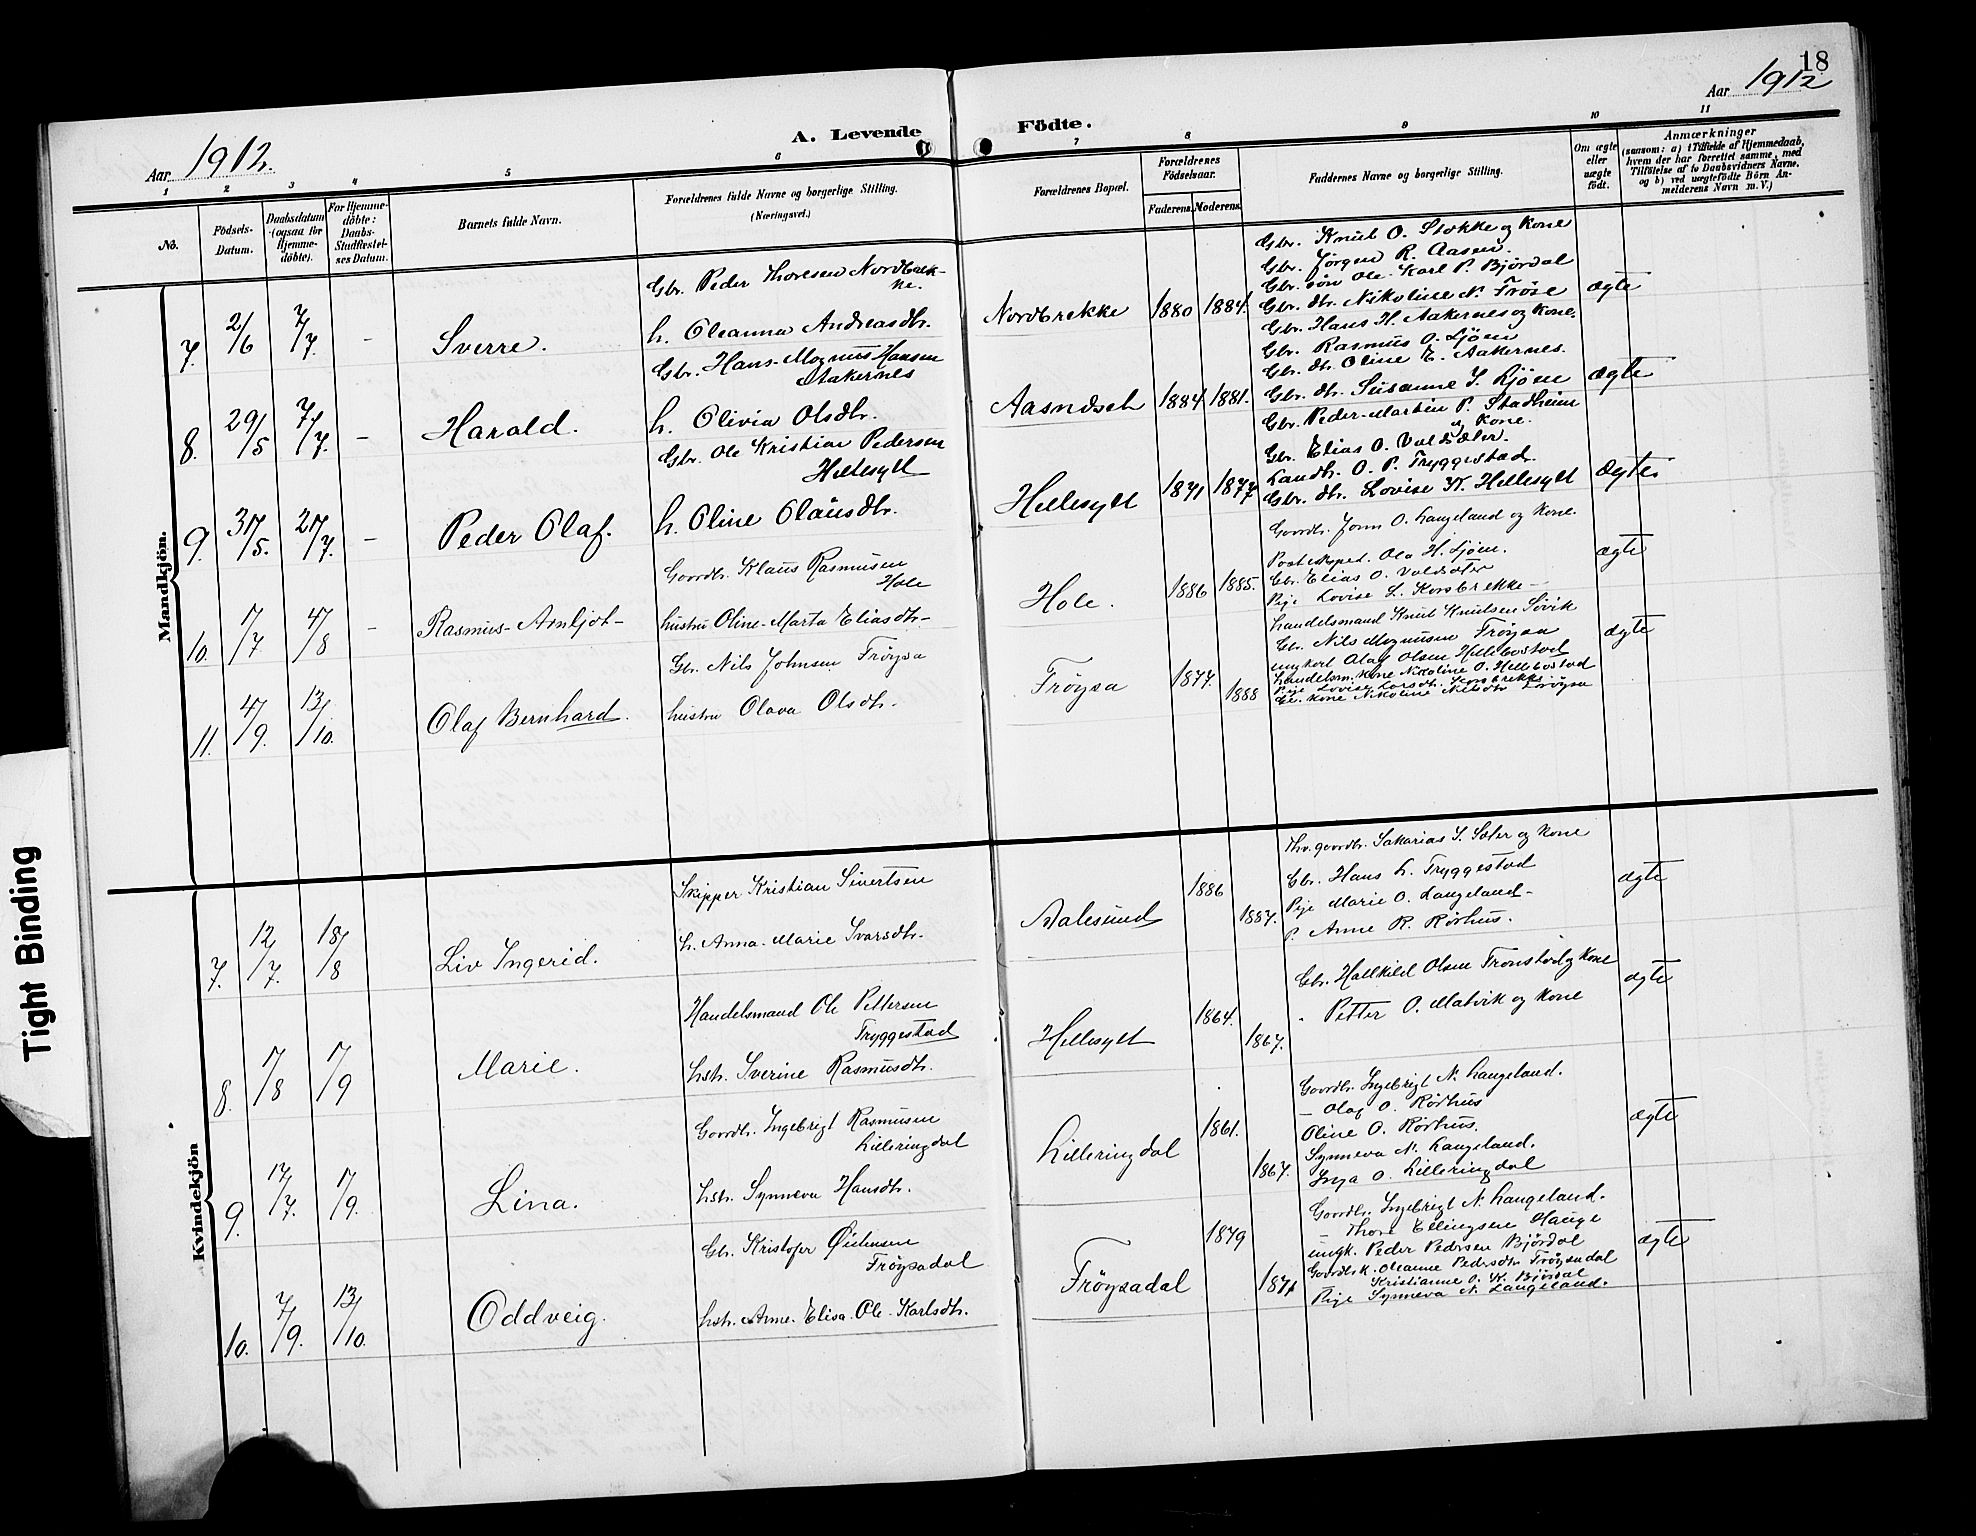 18
Aar 1912.
A. Levende Födte.
Aar 1912
1 2 3 4 5 6 7 8 9 10 11
No.
Födsels-Datum.
Daabsdatum (ogsaa for Hjemme-döbte).
For Hjemme-döbte: Daabs-Stadfæstel-ses Datum.
Barnets fulde Navn.
Forældrenes fulde Navne og borgerlige Stilling. (Næringsvei.)
Forældrenes Bopæl.
Forældrenes Födselsaar.
Faderens. Moderens.
Faddernes Navne og borgerlige Stilling.
Om ægte eller uægte födt.
Anmærkninger
(saasom: a) i Tilfælde af Hjemmedaab, hvem der har forrettet samme, med Tilföielse af to Daabsvidners Navne, og b) ved uægtefödte Börn Anmelderens Navn m. V.)
Mandkjön.
7. 2/6 7/7. - Sverre.
Gbr. Peder Thoresen Nordbrek-
ke.
h. Oleanna Andreasdtr.
Nordbrekke 1880 1884.
Gbr. Knut O. Stokke og Kone
Gbr. Jørgen R. Aasen.
Gbr. søn Ole-Karl P. Bjørdal
Gbr. dtr. Nikoline N. Frøse
ægte
8. 29/5 7/7. - Harald.
Gbr. Hans-Magnus Hansen
Aakernes
h. Olivia Olsdtr.
1884 1881.
Gbr. Hans H. Aakernes og Kone.
Gbr. Rasmus O. Ljøen
Gbr. dtr. Oline E. Aakernes.
Gbr. dtr. Susanne I. Ljøen
ægte
9. 31/5. 21/7. - Peder Olaf.
Gbr. Ole Kristian Pedersen
Hellesylt
h. Oline Olausdtr.
Hellesylt 1871 1877
Gbr. Peder-Martin P. Stadheim
og Kone.
Gbr. Elias O. Voldsæter.
Landh. O. P. Tryggestad.
Gbr. dtr. Lovise K. Hellesylt
Ægte
10. 1/7 4/8 - Rasmus-Arnljot-
Gaardbr. Klaus Rasmusen
Hole
hustru Oline-Marta Eliasdtr-
Hole. 1886 1885.
Gaardbr. Jonn O. Langeland og Kone.
Posteksped. Ola H. Ljøen.
Gbr. Elias O. Voldsæter
Pige Lovise L. Korsbrekke-
ægte
11. 4/9. 13/10. Olaf Bernhard.
Gbr. Nils Johnsen Frøysa
hustru Olava Olsdtr.
Frøysa 1877. 1888
Handelsmand Knut Knutsen Søvik
Gbr. Nils Magnusen Frøysa
ungkarl Olaf Olsen Hellebostad
Handelsm. kone Nikoline O. Hellebostad
Pige Lovise Larsdtr. Korsbrekke
Gb. kone Nikoline Nilsdtr Frøysa
ægte
Kvindekjön
7. 12/7. 18/8 Liv Ingerid.
Skipper Kristian Sivertsen
h. Anna-Marie Ivarsdtr.
Aalesund 1886 1887.
Thv. gaardbr. Sakarias I. Sæter og Kone
Gbr. Hans L. Tryggestad
Pige Marie O. Langeland-
P. Anne R. Rørhus.
ægte
8. 1/8 1/9 Marie.
Handelsmand Ole Pettersen
Tryggestad
hstr. Sverine Rasmusdtr.
Hellesylt 1864. 1867.
Gbr. Hallkild Olsen Tronstad og Kone
- Petter O. Matvik og Kone
ægte
9. 17/7. 1/9. Lina.
Gaardbr. Ingebrigt Rasmusen
Lilleringdal
hstr. Synneva Hansdtr.
Lilleringdal 1861. 1867.
Gaardbr. Ingebrigt N. Langeland.
- Olaf O. Rørhus
Oline O. Rørhus.
Synneva N. Langeland.
Inga O. Lilleringdal
ægte
10. 7/9. 13/10. Oddveig.
Gbr. Kristofer Østensen
Frøysadal
hstr. Anne-Elisa Ole-Karlsdtr.
Frøysadal 1879 1871
Gaardbr. Ingebrigt N. Langeland.
- Thore Ellingsen Hauge
ungk. Peder Pedersen Bjørdal
Gaardbrk. Oleanne Pedersdtr Frøysadal
Kristianne O. K. Bjørdal
Pige Synneva N. Langeland.
ægte
Tight Binding